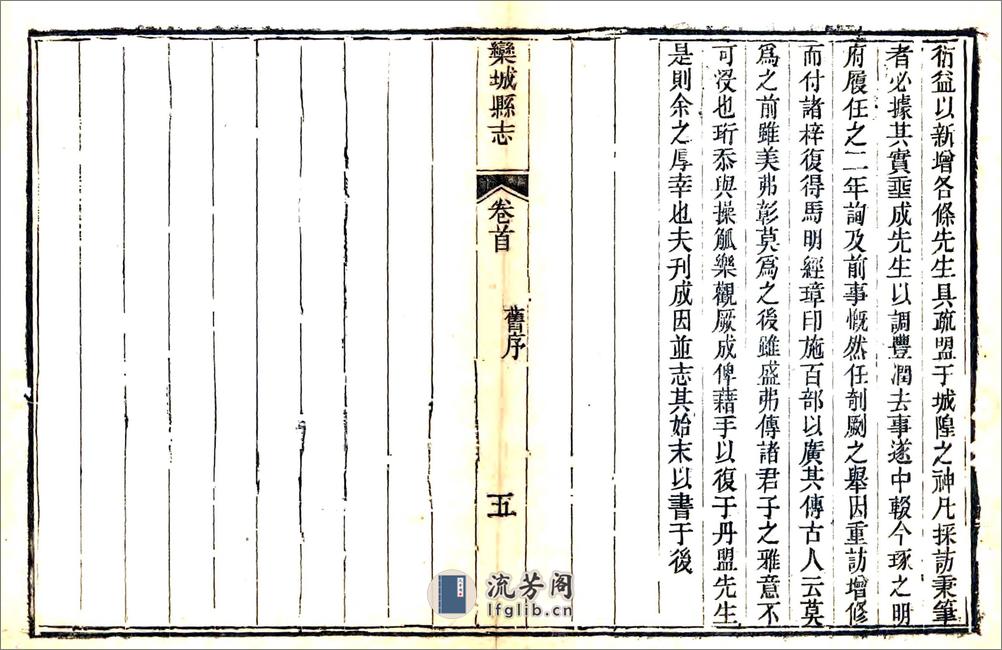 衍益以新增各條先生具疏盟于城隍之神凡採訪秉筆
者必據其實垂成先生以調豐潤去事遂中輟今琢之明
府履任之二年詢及前事慨然任剞劂之舉因重訪增修
而付諸梓復得馬明經璋印施百部以廣其傳古人云莫
為之前雖美弗彰莫為之後雖盛弗傳諸君子之雅意不
可沒也珩忝與操觚樂觀厥成俾藉手以復于丹盟先生
是則余之厚幸也夫刊成因並志其始末以書于後
欒城縣志
卷首
舊序
五
流芳阁
lfglib.cn